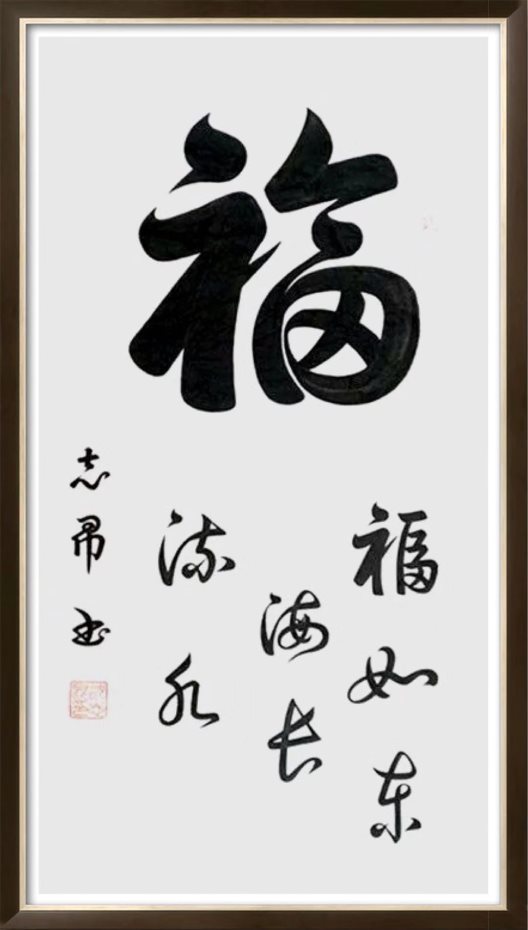 福
福如东
海长
流水
志 书